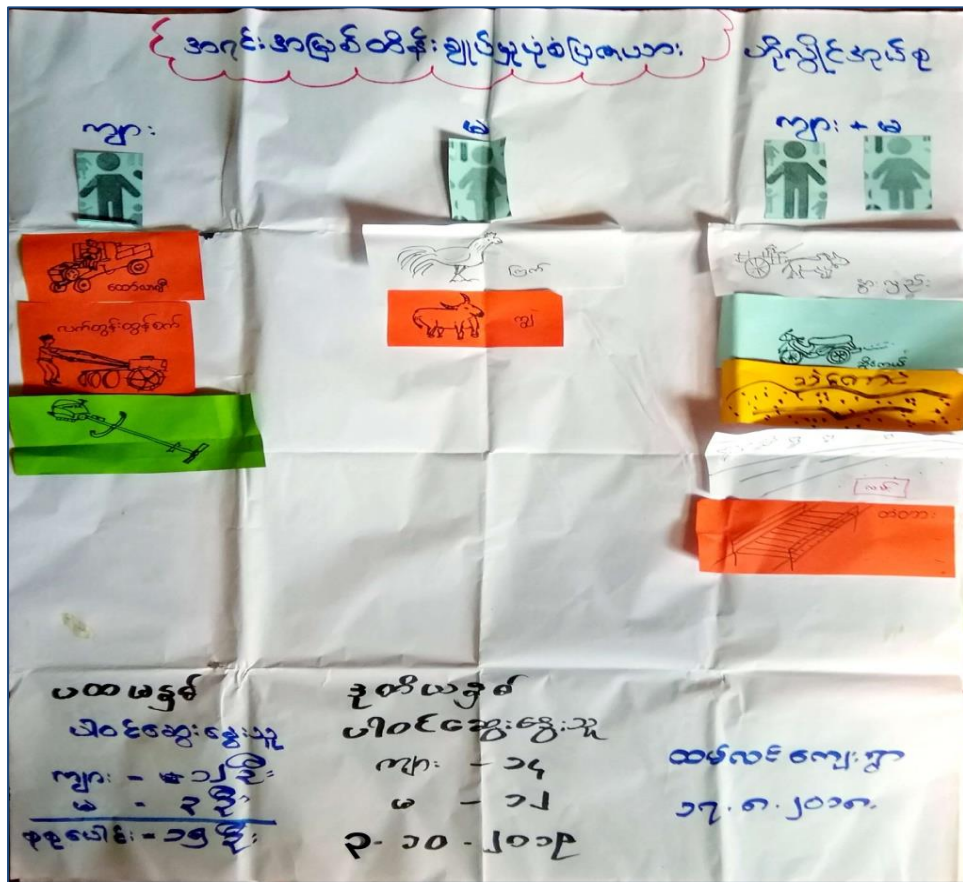 အရင်းအမြစ်ထိန်းချုပ်မှုပုံစံပြဇယား
ကိုလှိုင်အုပ်စု
ကျား
မ
ကျား + မ
ထော်လာဂျီ
ကြက်
နွားလှည်း
လက်တွန်းထွန်စက်
ကျွဲ
ဆိုင်ကယ်
သဲကောင်
လမ်း
တံတား
ပထမနှစ်
ပါဝင်ဆွေးနွေးသူ
ကျား - ၁၂ ဦး
မ - ၃ ဦး
စုစုပေါင်း - ၁၅ ဦး
ဒုတိယနှစ်
ပါဝင်ဆွေးနွေးသူ
ကျား - ၁၄
မ - ၁၂
၃ - ၁၀ - ၂၀၁၉
ထမ်လင်ကျေးရွာ
၁၇.၈.၂၀၁၈.